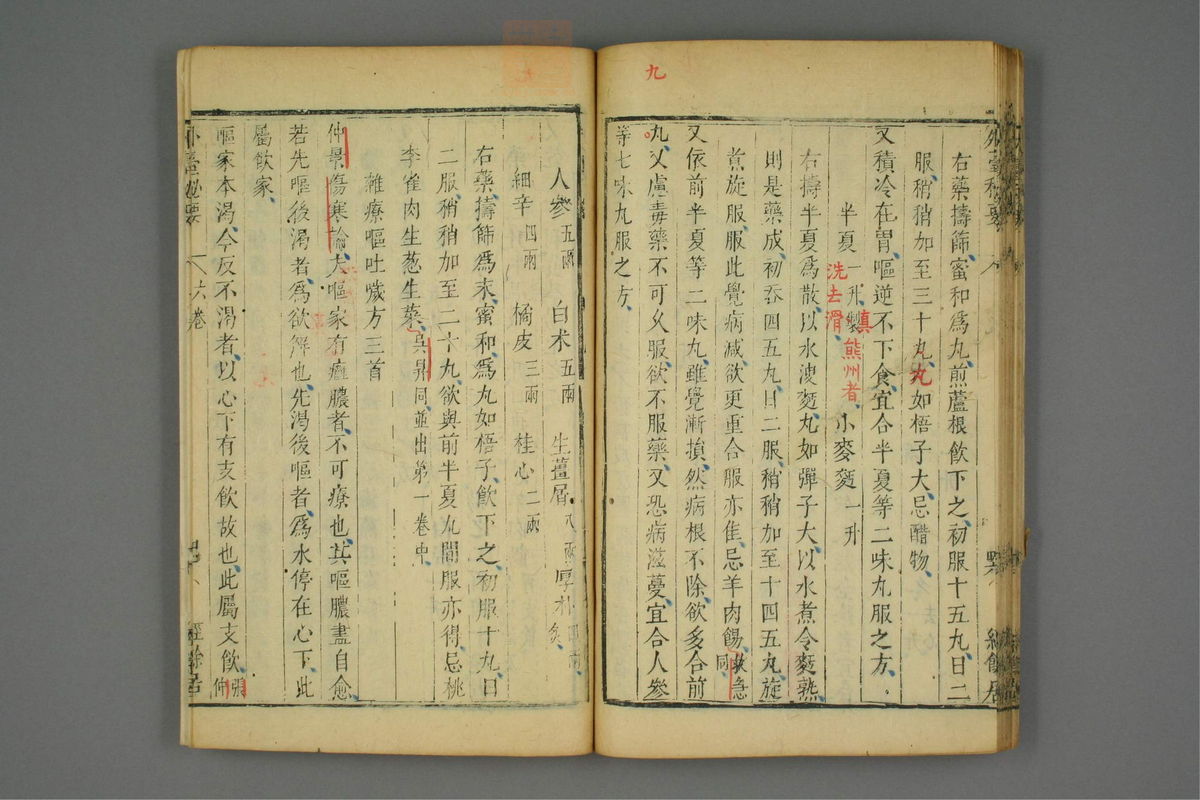 九
右藥擣篩蜜和爲丸煎蘆根飲下之初服十五丸日二
服稍稍加至三十丸丸如梧子大忌醋物
又積冷在胃嘔逆不下食宜合半夏等二味丸服之方
半夏一升製洗去滑真熊州者 小麥麪一升
右擣半夏爲散以水溲麪丸如彈子大以水煮令麪熟
則是藥成初吞四五丸日二服稍稍加至十四五丸旋
煮旋服服此覺病减欲更重合服亦佳忌羊肉餳救急同
又依前半夏等二味丸雖覺漸損然病根不除欲多合前
丸又慮毒藥不可久服欲不服藥又恐病滋蔓宜合人參
等七味丸服之方
人參五兩 白朮五兩 生薑屑八兩 厚朴四兩炙
細辛四兩 橘皮三兩 桂心二兩
右藥擣篩爲末蜜和爲丸如梧子飲下之初服十丸日
二服稍稍加至二十丸欲與前半夏丸間服亦得忌桃
李雀肉生葱生菜吳昇同並出第一卷中
雜療嘔吐噦方三首
仲景傷寒論大嘔家有癰膿者不可療也其嘔膿盡自愈
若先嘔後渴者爲欲觧也先渴後嘔者爲水停在心下此
屬飲家
嘔家本渴今反不渴者以心下有支飲故也此屬支飲張仲
外臺秘要 六卷 經餘居